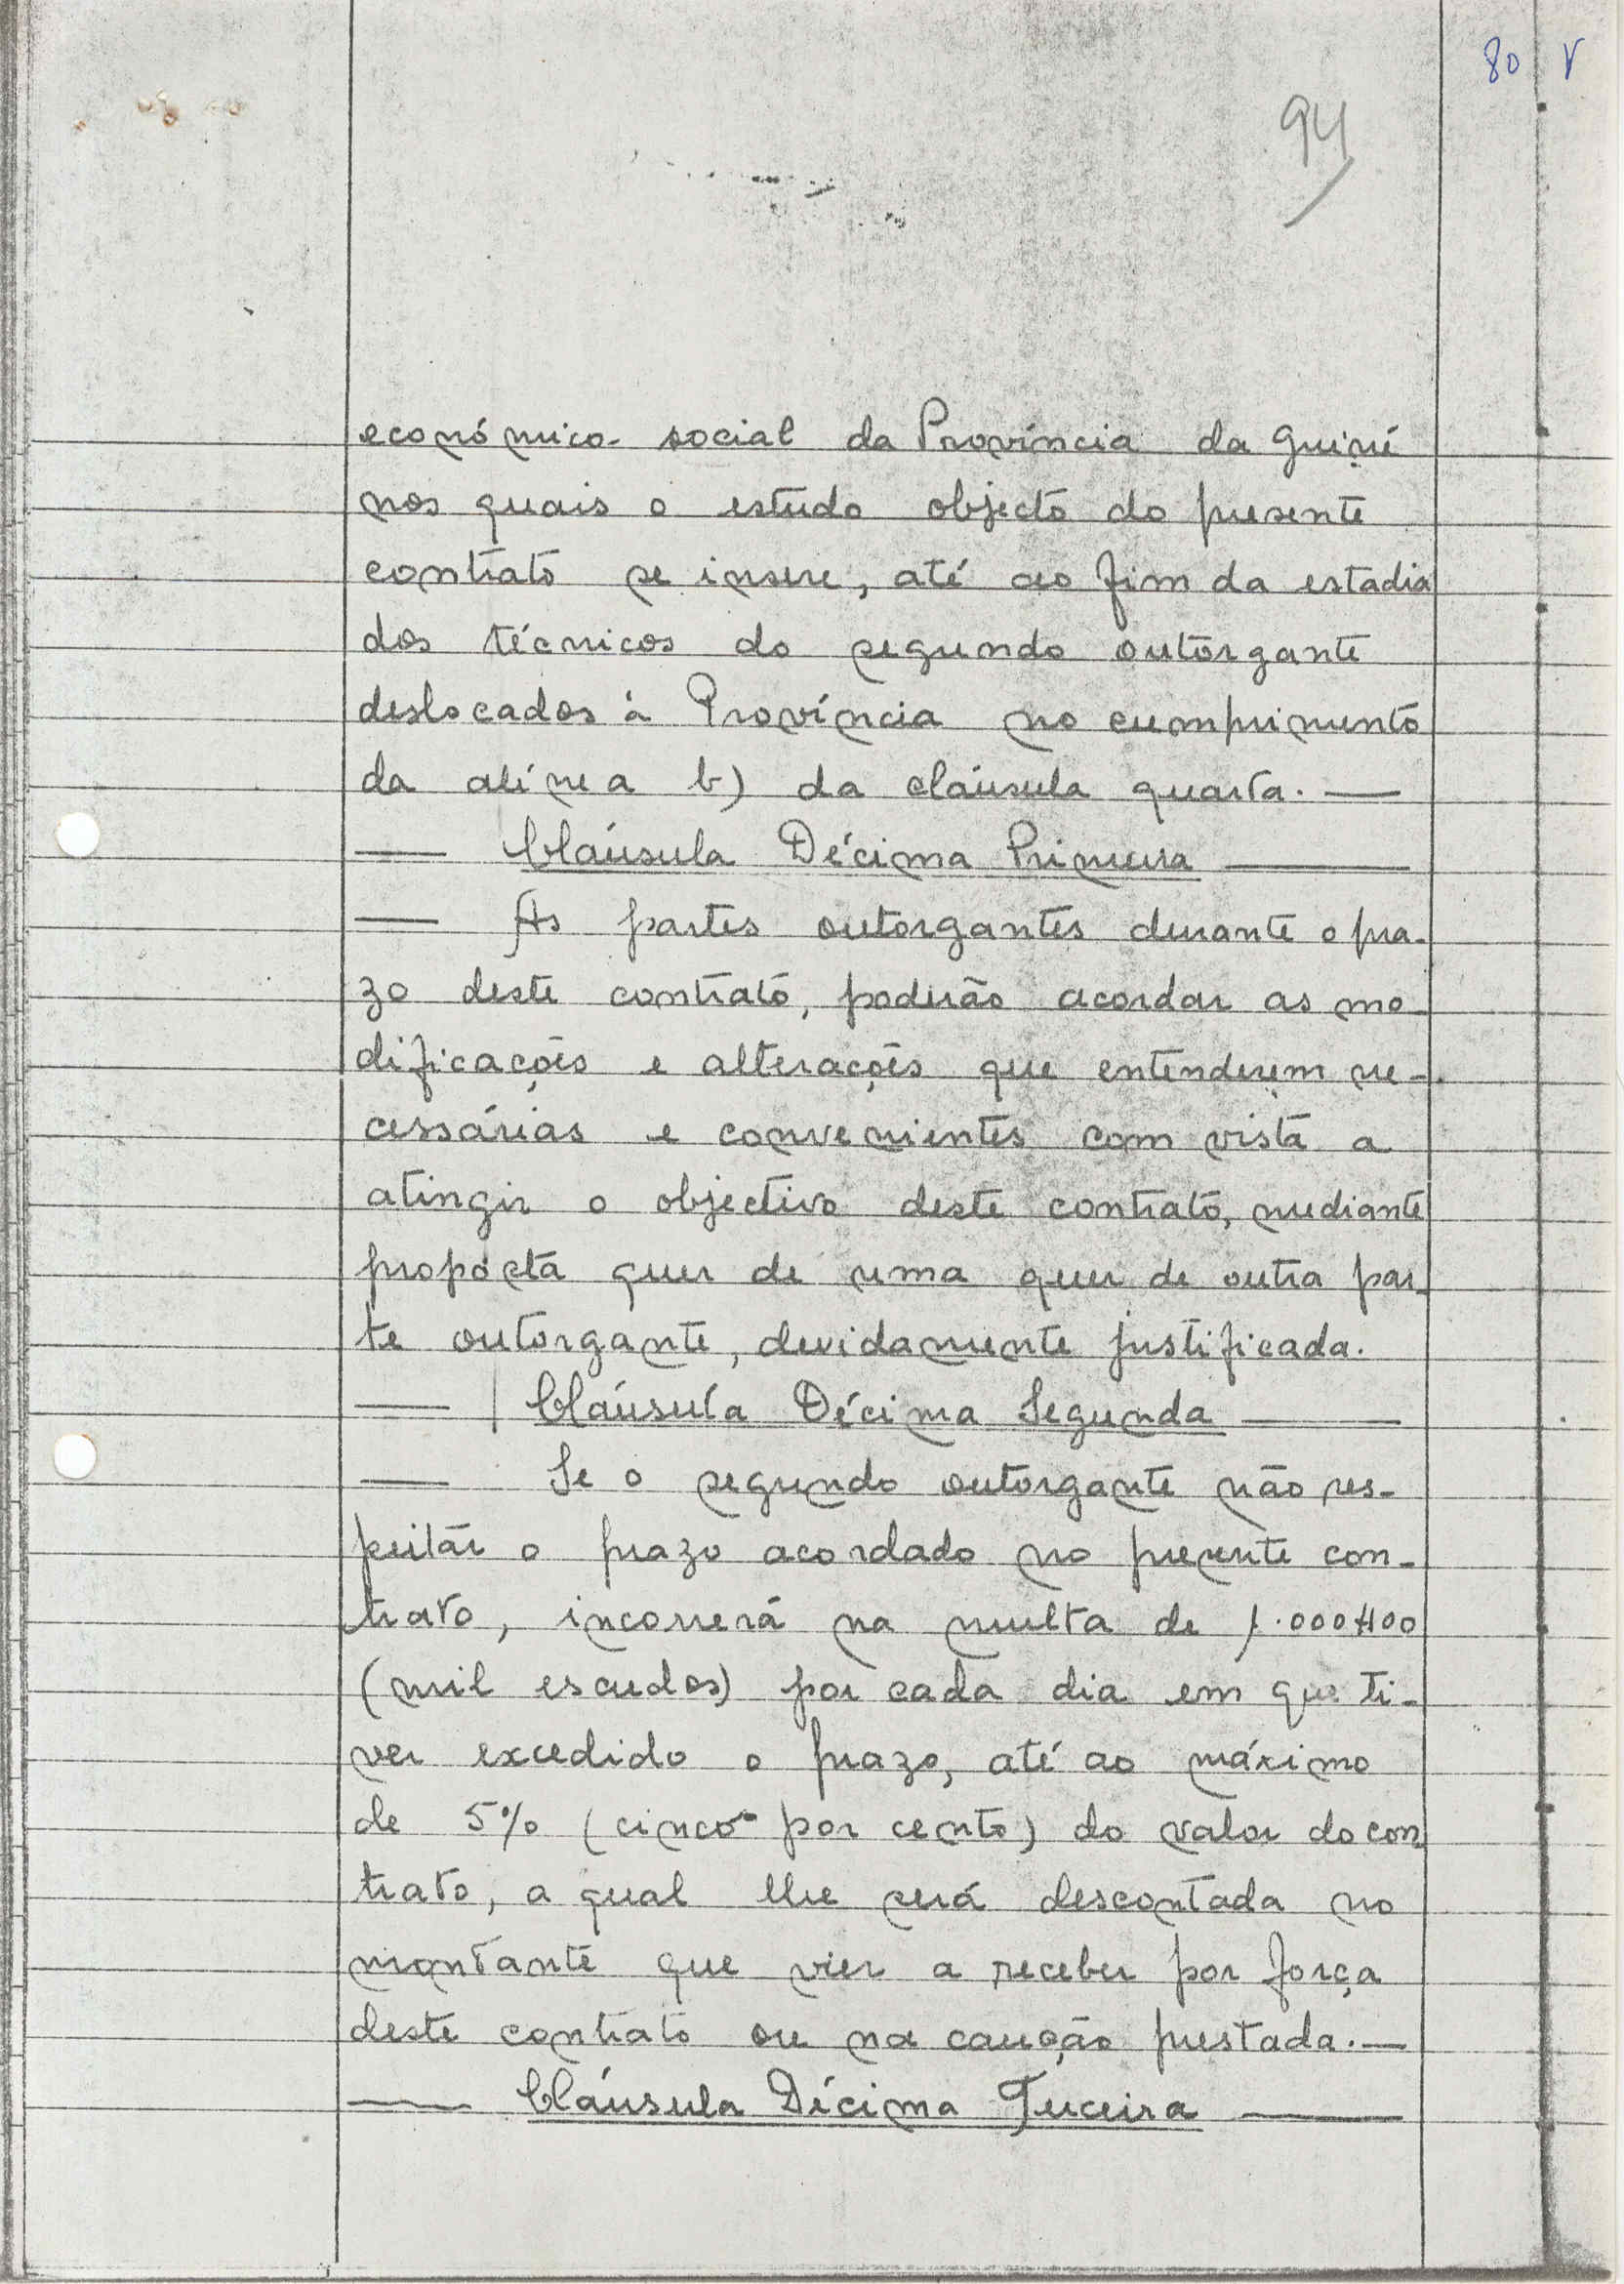 80 V
94
económico-social da Província da Guiné
nos quais o estudo objecto do presente
contrato se insere, até ao fim da estadia
dos técnicos do segundo outorgante
deslocados à Província no cumprimento
da alínea b) da cláusula quarta. —
— Cláusula Décima Primeira —
— As partes outorgantes durante o pra-
zo deste contrato, poderão acordar as mo-
dificações e alterações que entenderem ne-
cessárias e convenientes com vista a
atingir o objectivo deste contrato, mediante
proposta quer de uma quer de outra par-
te outorgante, devidamente justificada.
— Cláusula Décima Segunda —
— Se o segundo outorgante não res-
peitar o prazo acordado no presente con-
trato, incorrerá na multa de 1.000$00
(mil escudos) por cada dia em que ti-
ver excedido o prazo, até ao máximo
de 5% (cinco por cento) do valor do con
trato, a qual lhe será descontada no
montante que vier a receber por força
deste contrato ou na caução prestada. —
— Cláusula Décima Terceira —